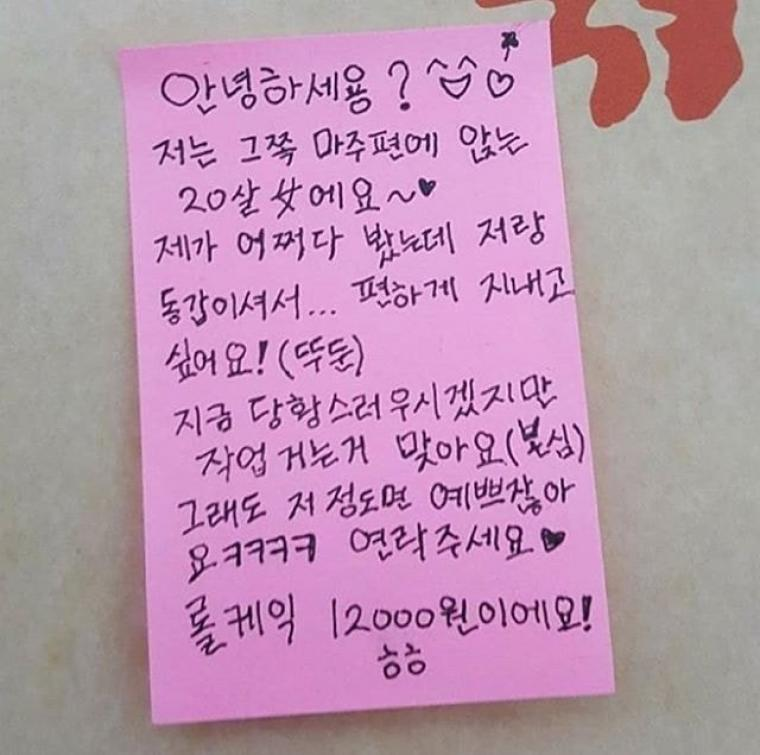 안녕하세용?
저는 그쪽 마주편에 앉는
20살 女에요~♥
제가 어쩌다 봤는데 저랑
동갑이셔서... 편하게 지내고
싶어요! (뚜둔)
지금 당황스러우시겠지만
작업 거는거 맞아요(본심)
그래도 저 정도면 예쁘잖아
요ㅋㅋㅋㅋ 연락주세요♥
롤케익 12000원이에요!
ㅎㅎ